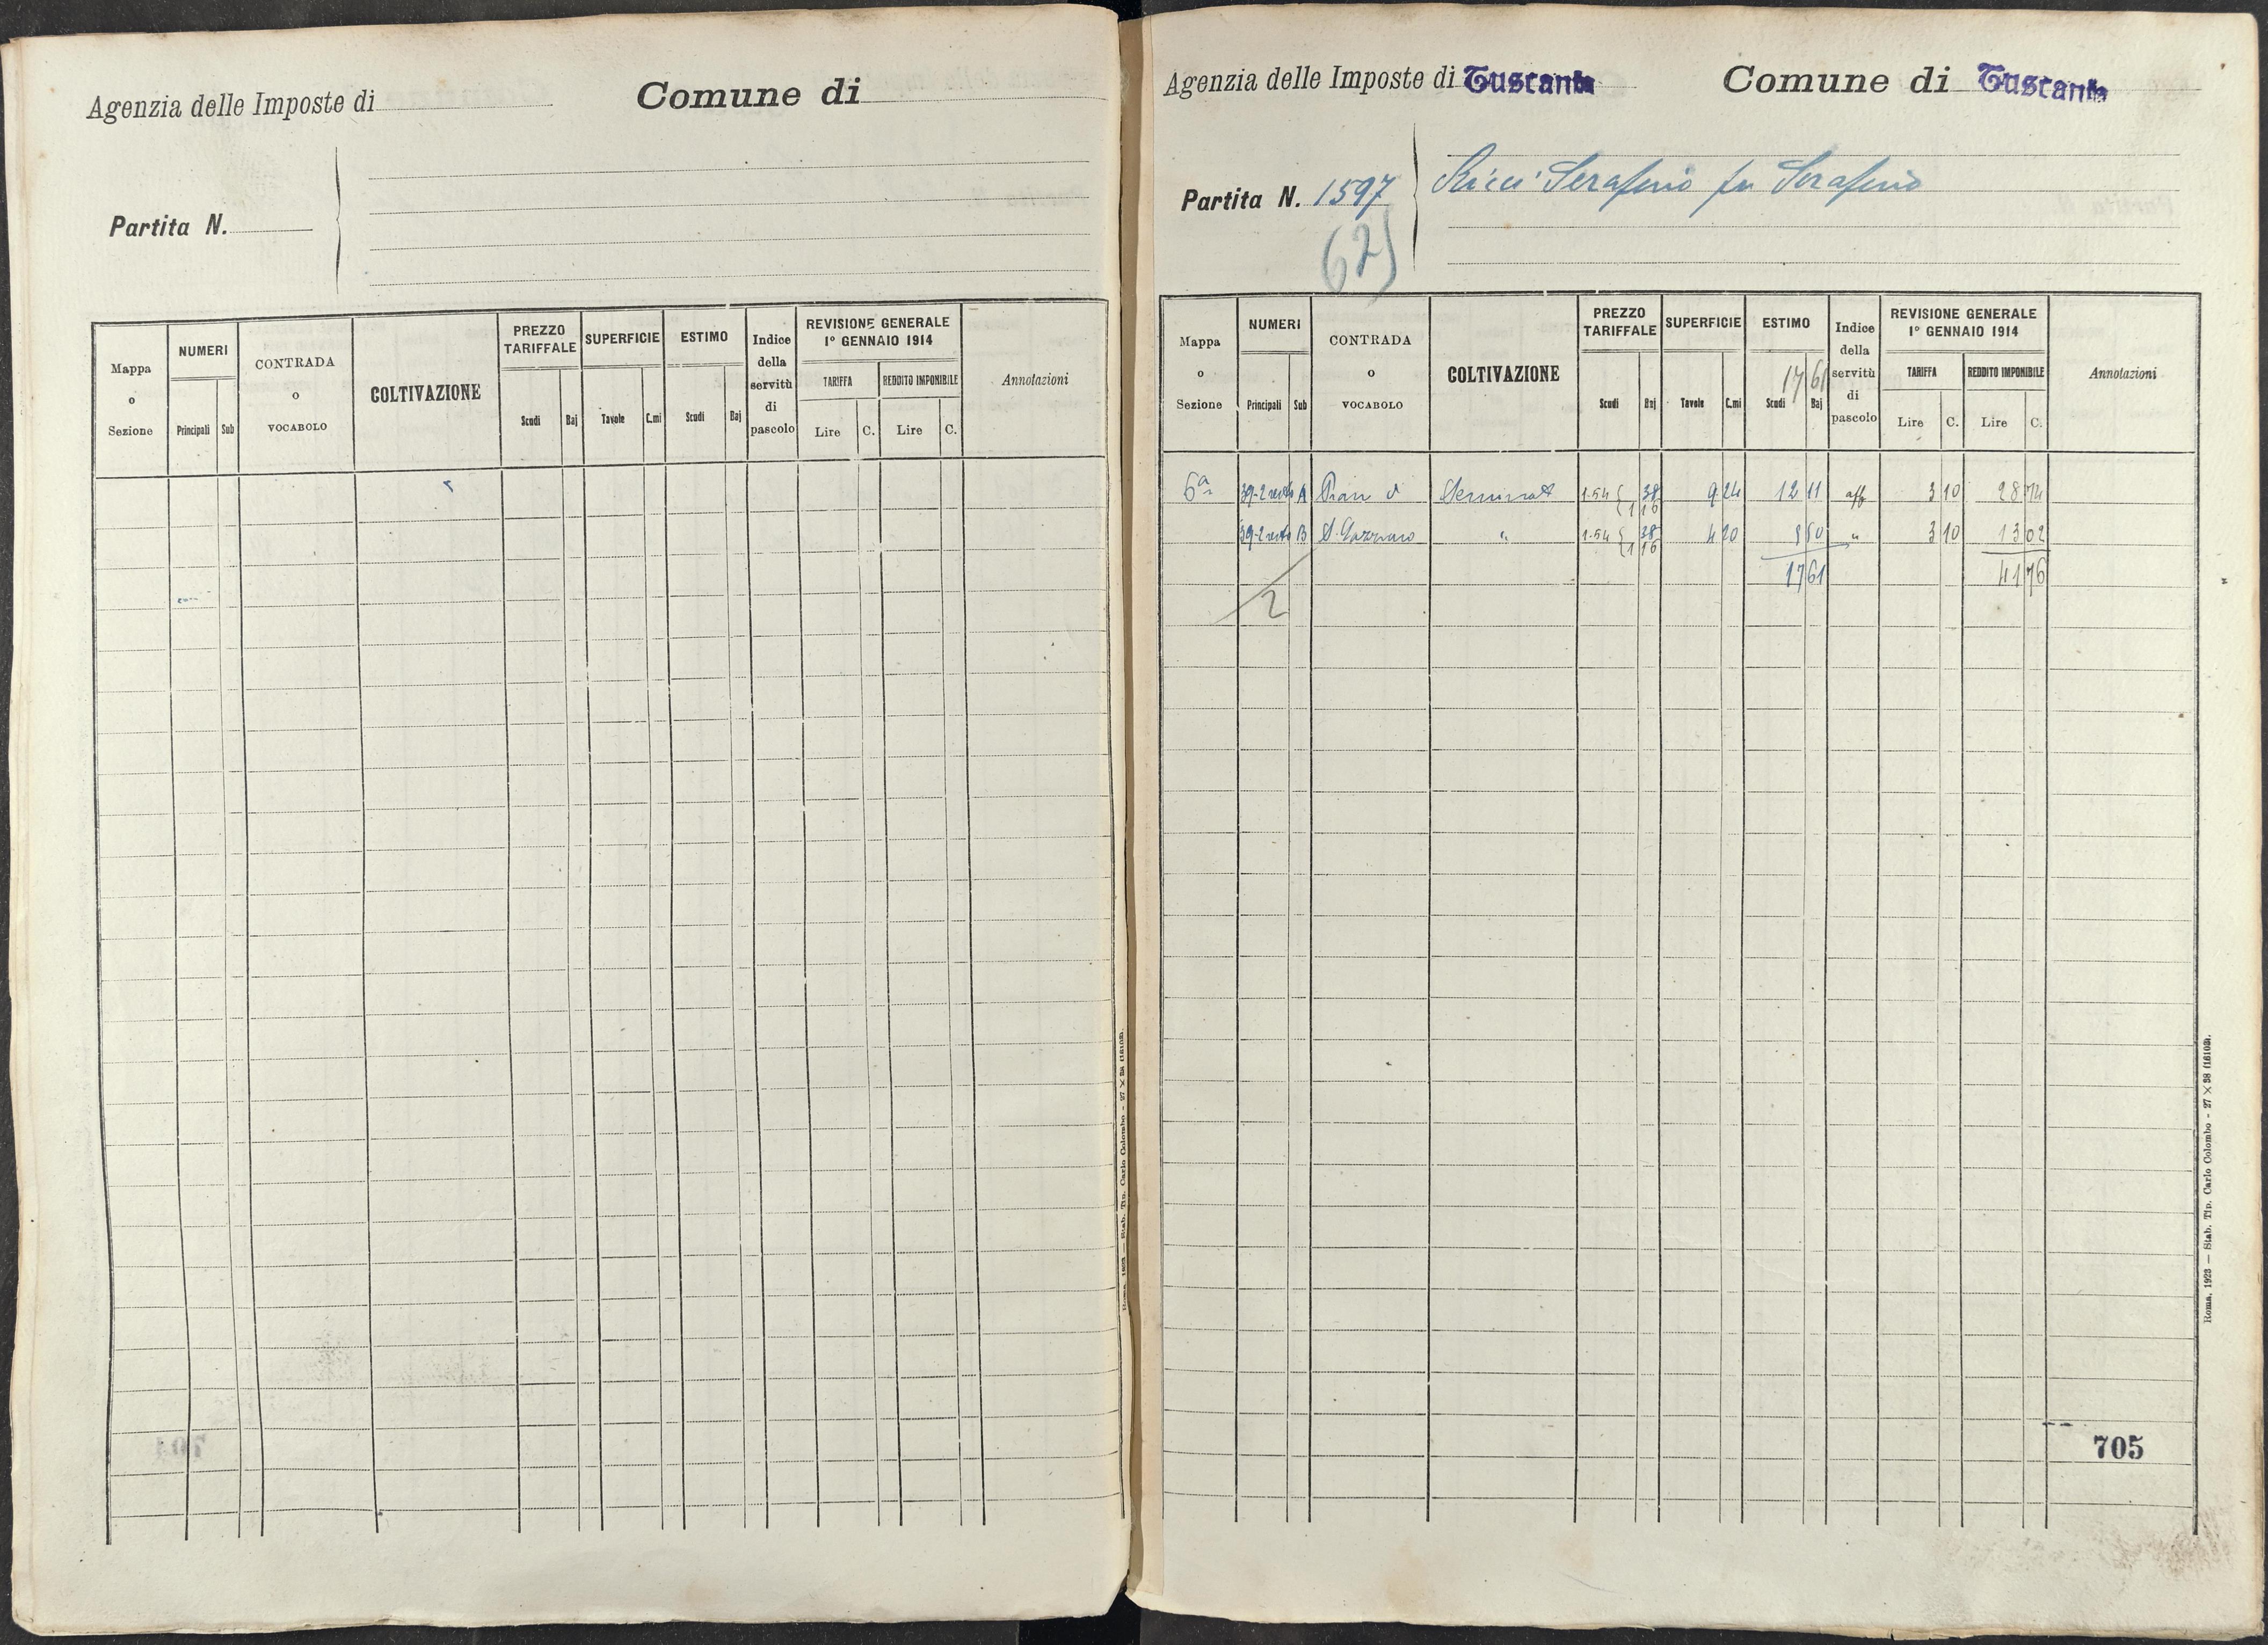 Agenzia delle Imposte di
Comune di
Partita N.
Mappa o Sezione
NUMERI
Principali Sub
CONTRADA o VOCABOLO
COLTIVAZIONE
PREZZO TARIFFALE
Scudi Baj
SUPERFICIE
Tavole C.mi
ESTIMO
Scudi Baj
Indice della servitù di pascolo
REVISIONE GENERALE
1° GENNAIO 1914
TARIFFA
Lire C.
REDDITO IMPONIBILE
Lire C.
Annotazioni
Roma, 1923 — Stab. Tip. Carlo Colombo - 27 × 38 (16103).
Agenzia delle Imposte di Tuscania
Comune di Tuscania
Partita N. 1597
Ricci Serafino fu Serafino
Mappa o Sezione
NUMERI
Principali Sub
CONTRADA o VOCABOLO
COLTIVAZIONE
PREZZO TARIFFALE
Scudi Baj
SUPERFICIE
Tavole C.mi
ESTIMO
17 61
Scudi Baj
Indice della servitù di pascolo
REVISIONE GENERALE
1° GENNAIO 1914
TARIFFA
Lire C.
REDDITO IMPONIBILE
Lire C.
Annotazioni
6a 39-2 resto A Pian di Seminat 1.54 38 1 16 9 24 12 11 aff 3 10 28 74
39-2 resto B S. Lazzaro " 1.54 38 1 16 4 20 5 50 " 3 10 13 02
17 61 41 76
2
705
Roma, 1923 — Stab. Tip. Carlo Colombo - 27 × 38 (16103).